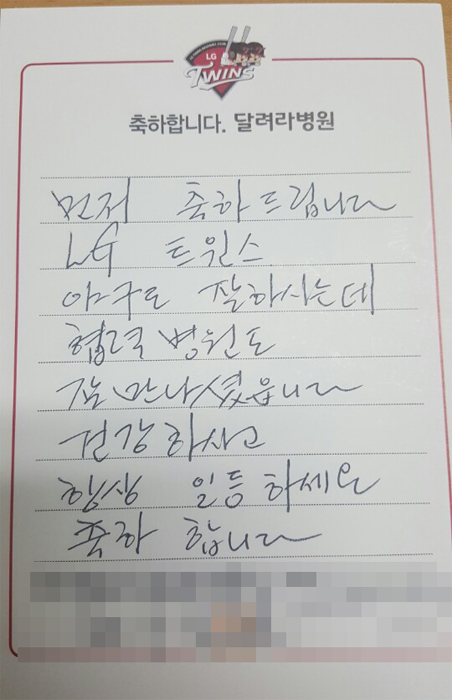 LG
TWINS
축하합니다. 달려라병원
먼저 축하드립니다
LG 트윈스
야구도 잘하시는데
협력 병원도
잘 만나셨읍니다
건강하시고
항상 일등하세요
축하 합니다